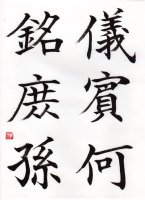 儀賓何
銘庶孫